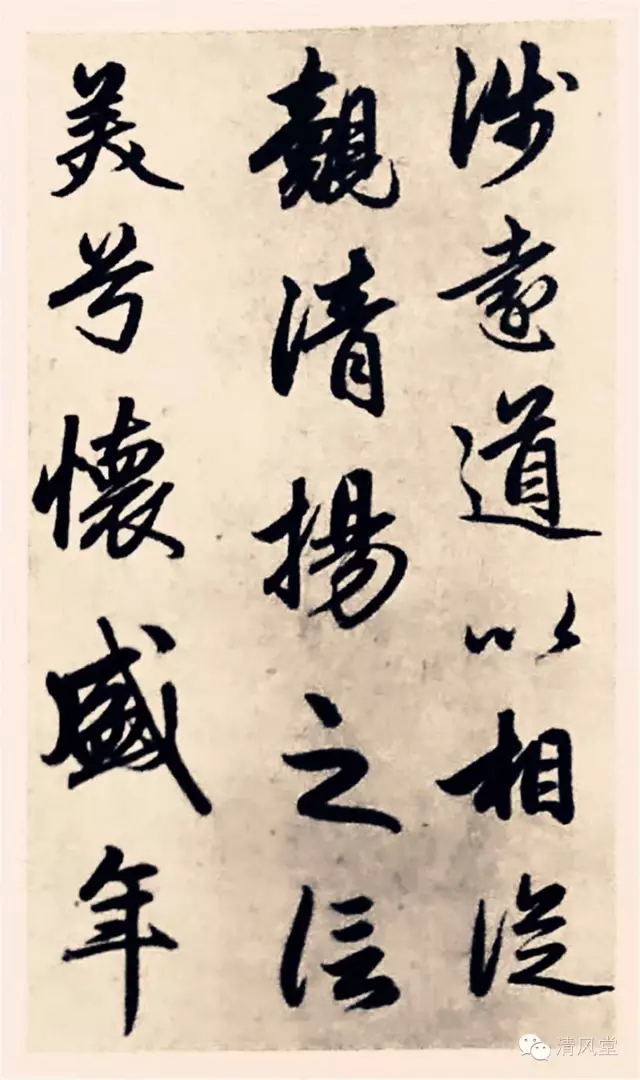 涉遠道以相從
覿清揚之信
美兮懷盛年
清风堂